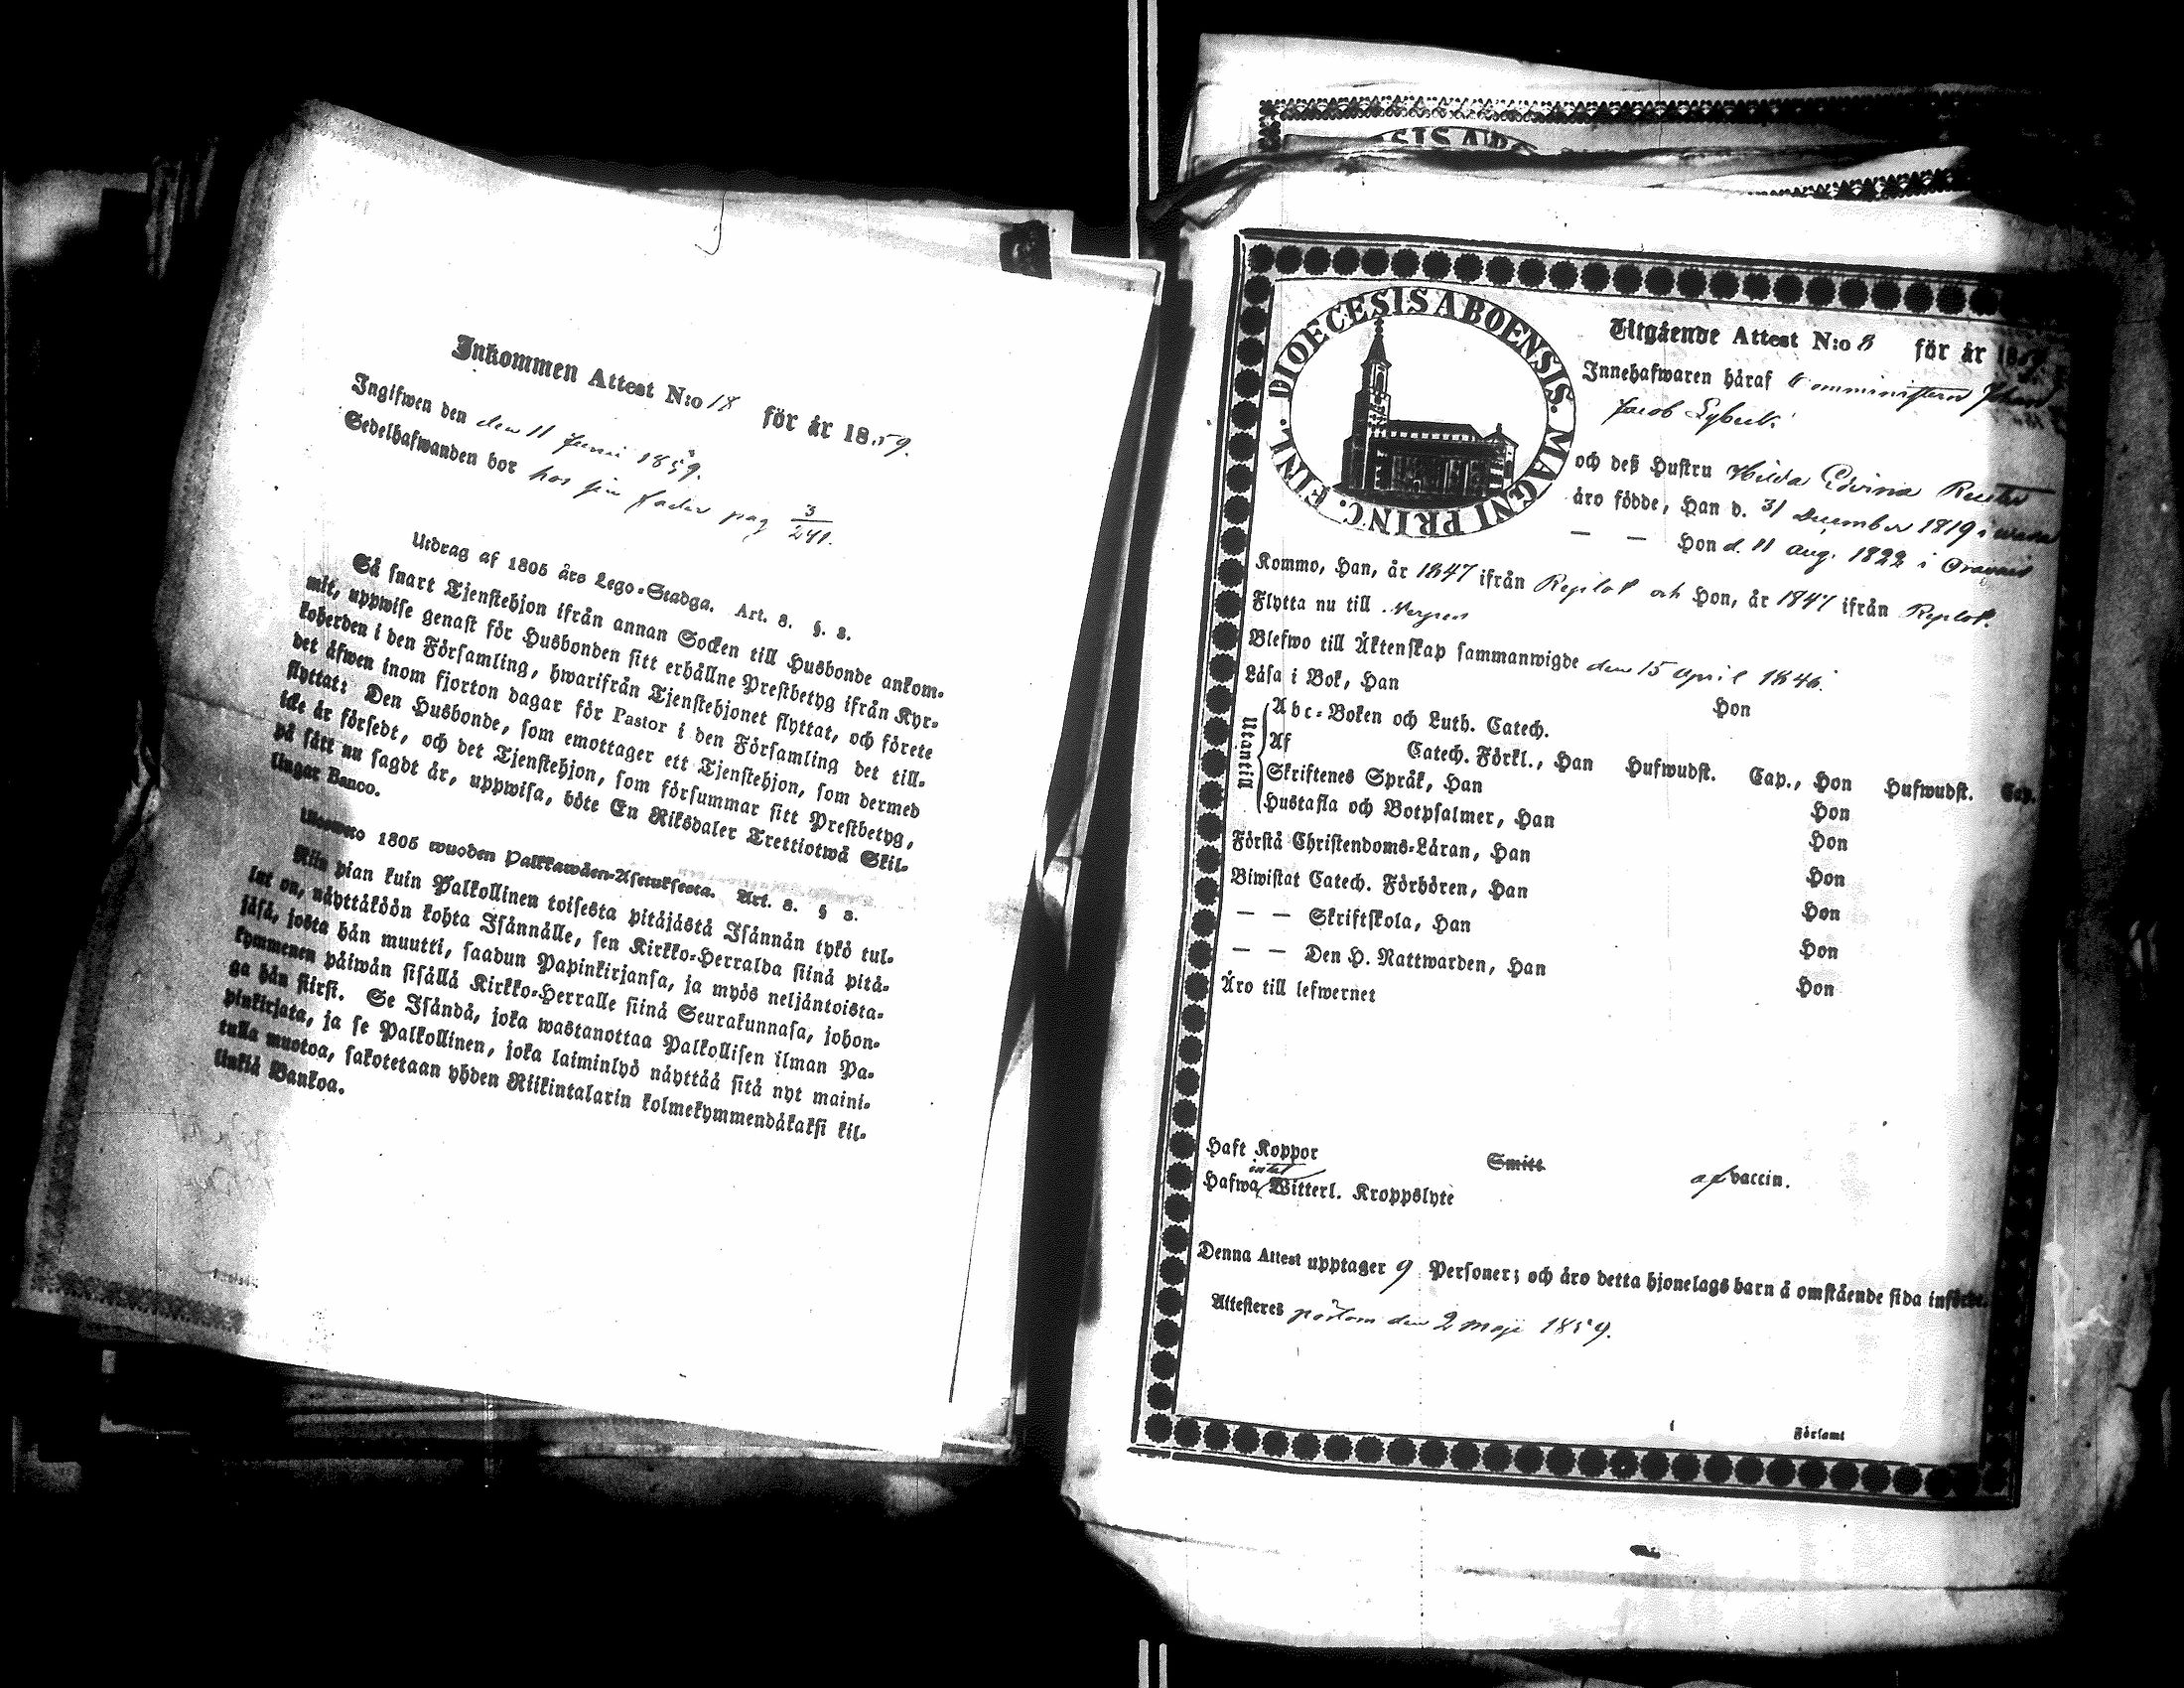 Inkommen Attest N:o 18 för år 1859.
Ingifwen den den 11 Juni 1859.
Sedelhafwanden bor hos sin fader pag 3/241.
Utdrag af 1805 års Lego-Stadga. Art. 8. §. 8.
Så snart Tjenstehjon ifrån annan Socken till Husbonde ankom-
mit, uppwise genast för Husbonden sitt erhållne Prestbetyg ifrån Kyr-
koherden i den Församling, hwarifrån Tjenstehjonet flyttat, och förete
det äfwen inom fjorton dagar för Pastor i den Församling det till-
flyttat: Den Husbonde, som emottager ett Tjenstehjon, som dermed
icke är försedt, och det Tjenstehjon, som försummar sitt Prestbetyg,
på sätt nu sagdt är, uppwisa, böte En Riksdaler Trettiotwå Skil-
lingar Banco.
1805 wuoden Palkkawäen-Asetuksesta. Art. 8. § 8.
Niin pian kuin Palkollinen toisesta pitäjästä Isännän tykö tul-
lut on, näyttäköön kohta Isännälle, sen Kirkko-Herralda siinä pitä-
jäsä, josta hän muutti, saadun Papinkirjansa, ja myös neljäntoista-
kymmenen päiwän sisällä Kirkko-Herralle siinä Seurakunnasa, johon-
ga hän siirsi. Se Isändä, joka wastanottaa Palkollisen ilman Pa-
pinkirjata, ja se Palkollinen, joka laiminlyö näyttää sitä nyt maini-
tulla muotoa, sakotetaan yhden Riikintalarin kolmekymmendäkaksi kil-
linkiä Bankoa.
DIOECESIS ABOENSIS. MAGNI PRINC. FINL.
Utgående Attest N:o 8 för år 18
Innehafwaren häraf Comministern Johan
Jacob Lybeck
och deß Hustru Hilda Edvina
äro födde, Han d. 31 December 1819 i
— — Hon d. 11 aug. 1822 i Oravais
Kommo, Han, år 1847 ifrån Replot och Hon, år 1847 ifrån Replot.
Flytta nu till
Blefwo till Äktenskap sammanwigde den 15 april 1846.
Läsa i Bok, Han Hon
Utantill
Abc-Boken och Luth. Catech.
Af Catech. Förkl., Han Hufwudst. Cap., Hon Hufwudst. Cap.
Skriftenes Språk, Han Hon
Hustafla och Botpsalmer, Han Hon
Förstå Christendoms-Läran, Han Hon
Biwistat Catech. Förhören, Han Hon
— — Skriftskola, Han Hon
— — Den H. Nattwarden, Han Hon
Äro till lefwernet
Haft Koppor Smitt af vaccin.
intet
Hafwa Witterl. Kroppslyte
Denna Attest upptager 9 Personer; och äro detta hjonelags barn å omstående sida införde.
Attesteres pörtom den 2 Maji 1859.
i Församl